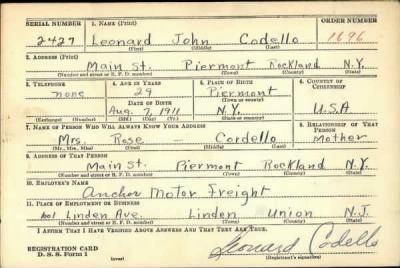 SERIAL NUMBER 1. NAME (Print) ORDER NUMBER
2427 Leonard John Codello 1696
(First) (Middle) (Last)
2. ADDRESS (Print)
Main St. Piermont Rockland N.Y.
(Number and street or R. F. D. number) (Town) (County) (State)
3. TELEPHONE 4. AGE IN YEARS 5. PLACE OF BIRTH 6. COUNTRY OF CITIZENSHIP
none 29 Piermont
(Town or county)
DATE OF BIRTH
Aug. 7, 1911 N.Y. U.S.A
(Exchange) (No.) (Mo.) (Day) (Yr.) (State or country)
7. NAME OF PERSON WHO WILL ALWAYS KNOW YOUR ADDRESS 8. RELATIONSHIP OF THAT PERSON
Mrs. Rose — Cordello Mother
(Mr., Mrs., Miss) (First) (Middle) (Last)
9. ADDRESS OF THAT PERSON
Main St. Piermont Rockland N.Y.
(Number and street or R. F. D. number) (Town) (County) (State)
10. EMPLOYER'S NAME
Anchor Motor Freight
11. PLACE OF EMPLOYMENT OR BUSINESS
601 Linden Ave. Linden Union N.J.
(Number and street or R. F. D. number) (Town) (County) (State)
I AFFIRM THAT I HAVE VERIFIED ABOVE ANSWERS AND THAT THEY ARE TRUE.
REGISTRATION CARD
D. S. S. Form 1 (over) Leonard Codello
(Registrant's signature)